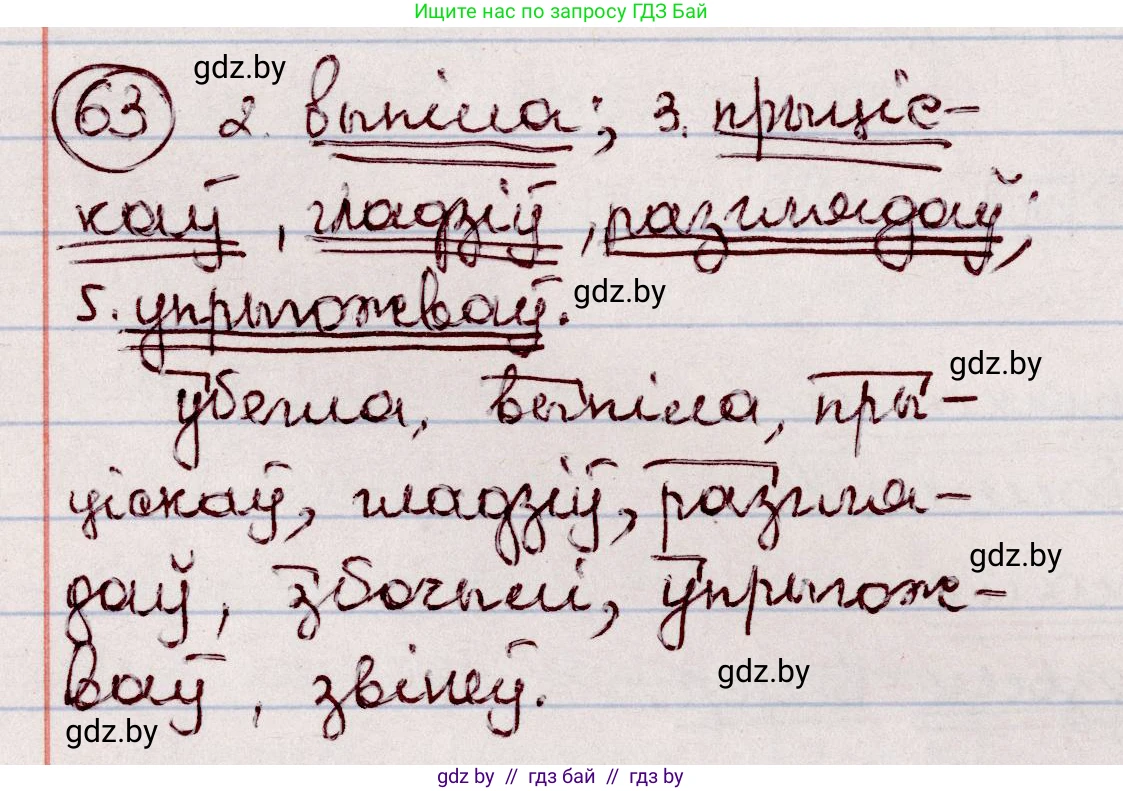 Ищите нас по запросу ГДЗ Бай
gdz.by
63 2. выпіла; 3. прыціс-
каў, гладзіў, разглядаў;
5. упрыгожваў.
gdz.by
gdz.by
убегла, выпіла, пры-
ціскаў, гладзіў, разгля-
gdz.by
даў, збочылі, упрыгож-
ваў, звінеў.
gdz.by
gdz.by
gdz by // гдз бай // гдз by